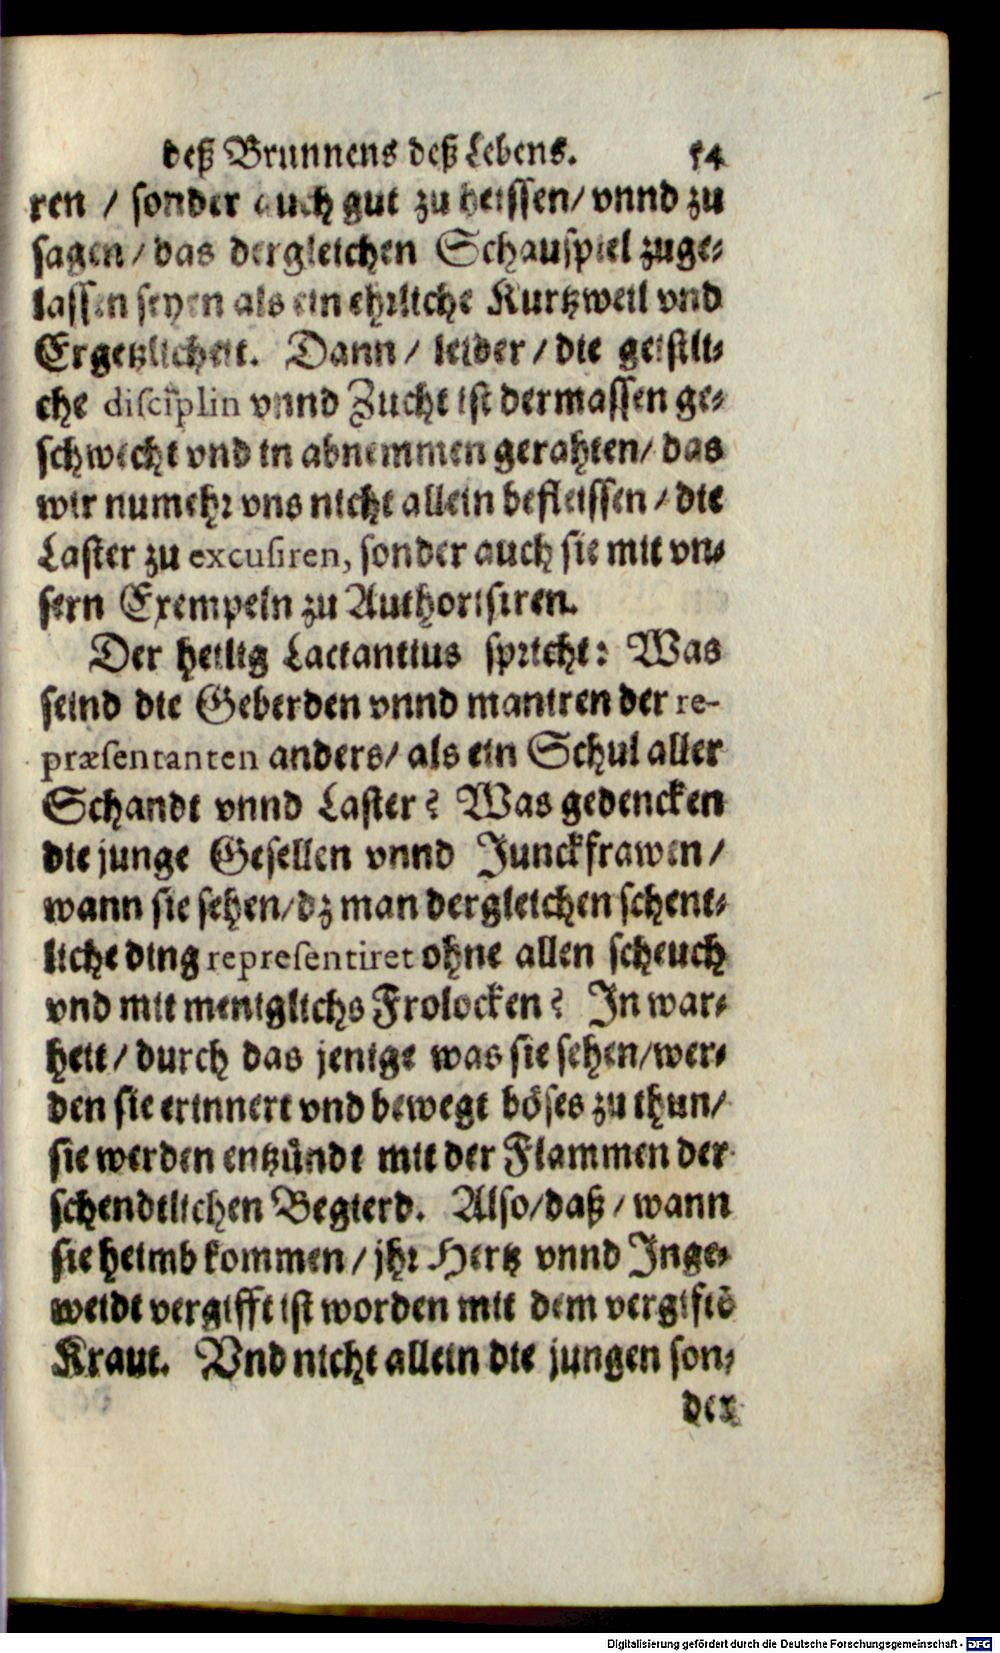 deß Brunnens deß Lebens. 54
ren / sonder auch gut zu heissen/ vnnd zu
sagen/ das dergleichen Schauspiel zuge-
lassen seyen als ein ehrliche Kurtzweil vnd
Ergetzlicheit. Dann/ leider/ die geistli-
che disciplin vnnd Zucht ist dermassen ge-
schwecht vnd in abnemmen gerahten/ das
wir numehr vns nicht allein befleissen/ die
Laster zu excusiren, sonder auch sie mit vn-
sern Exempeln zu Authorisiren.
Der heilig Lactantius spricht: Was
seind die Geberden vnnd maniren der re-
præsentanten anders/ als ein Schul aller
Schandt vnnd Laster? Was gedencken
die junge Gesellen vnnd Junckfrawen/
wann sie sehen/ dz man dergleichen schent-
liche ding representiret ohne allen scheuch
vnd mit meniglichs Frolocken? In war-
heit/ durch das jenige was sie sehen/ wer-
den sie erinnert vnd bewegt böses zu thun/
sie werden entzündt mit der Flammen der
schendtlichen Begierd. Also/ daß/ wann
sie heimb kommen/ jhr Hertz vnnd Inge-
weidt vergifft ist worden mit dem vergiftē
Kraut. Vnd nicht allein die jungen son-
der
Digitalisierung gefördert durch die Deutsche Forschungsgemeinschaft - DFG